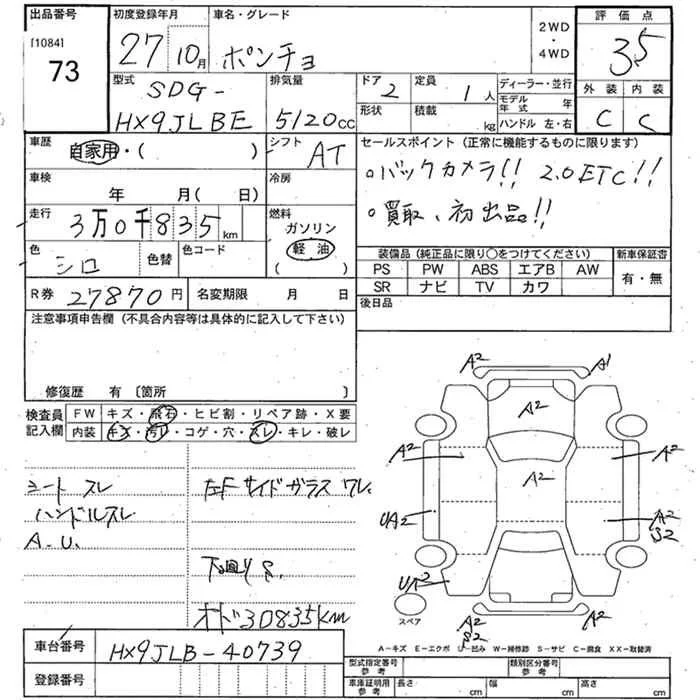 出品番号 初度登録年月 車名・グレード 2WD・4WD 評価点
[1084]
73 27 10月 ポンチョ 3.5
型式 SDG-HX9JLBE 排気量 5120cc ドア 2 定員 1人 ディーラー・並行 外装 内装
形状 積載 kg モデル年式 年 C C
ハンドル 左・右
車歴 自家用・( ) シフト AT セールスポイント (正常に機能するものに限ります)
。バックカメラ!! 2.0ETC!!
車検 年 月( 日) 冷房
。買取、初出品!!
走行 3万0千835km 燃料 ガソリン 軽油 ( )
色 シロ 色替 色コード
装備品 (純正品に限り○をつけてください) 新車保証書
PS PW ABS エアB AW 有・無
SR ナビ TV カワ
R券 27870円 名変期限 月 日 後日品
注意事項申告欄 (不具合内容等は具体的に記入して下さい)
修復歴 有 〔箇所 〕
検査員記入欄 FW キズ・飛石・ヒビ割・リペア跡・X要
内装 キズ・汚レ・コゲ・穴・スレ・キレ・破レ
シート スレ
ハンドルスレ
A.U.
左F サイドガラス ワレ
下廻りS.
オド30835km
A2 A1
A2
A2 A2
A2
UA2 A2
S2
UA2
A2 A2
S2
スペア
A-キズ E-エクボ U-凹み W-補修跡 S-サビ C-腐食 XX-取替済
車台番号 HX9JLB-40739
登録番号
型式指定番号 参考 類別区分番号 参考
車庫証明用 参考 長さ cm 幅 cm 高さ cm